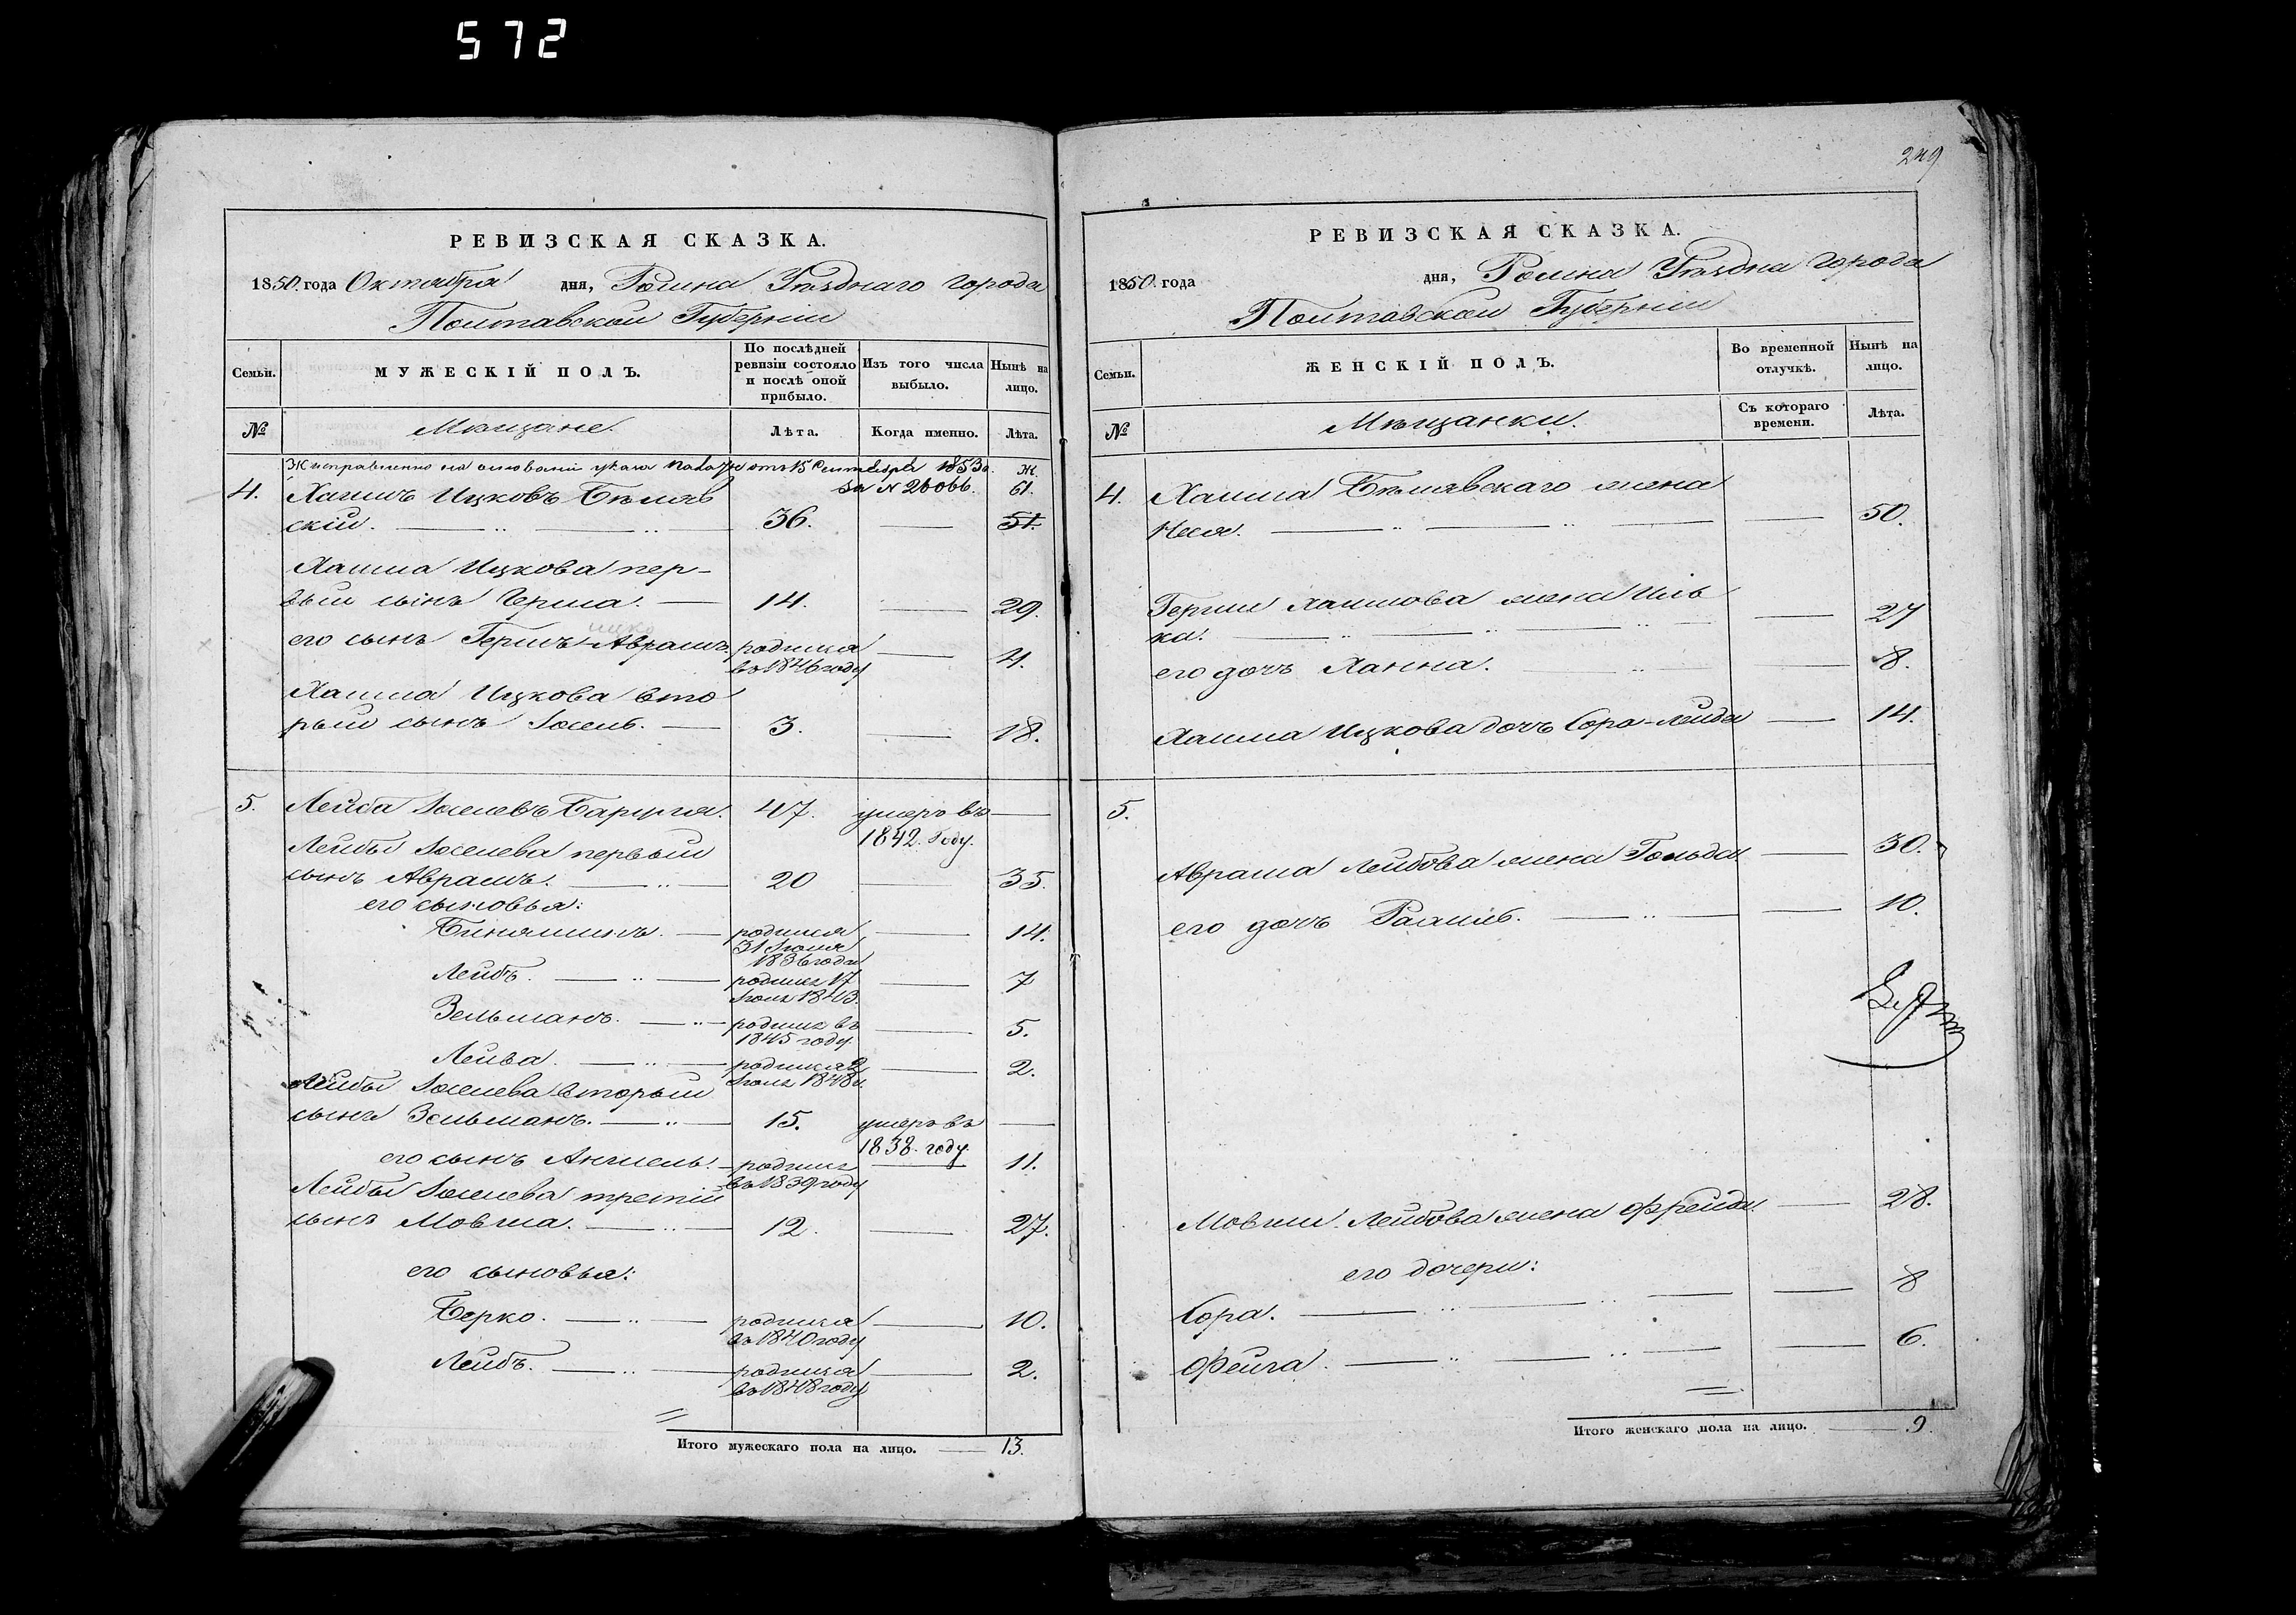 572
РЕВИЗСКАЯ СКАЗКА.
1850. года Октября дня, Ромна Уѣзднаго города
Полтавской Губерніи
Семьи.
МУЖЕСКІЙ ПОЛЪ.
По послѣдней ревизіи состояло и послѣ оной прибыло.
Изъ того числа выбыло.
Нынѣ на лицо.
№
Мѣщане.
Лѣта.
Когда именно.
Лѣта.
Ж исправленно на основаніи указа отъ 15 Сентября 1853 г. Ж
за N 26066. 61.
4. Хаимъ Ицковъ Бѣляв
скій. 36. 51.
Хаима Ицкова пер-
вый сынъ Герша. 14. 29.
ицко
его сынъ Гершъ-Аврамъ. родился 4.
въ 1846 году
Хаима Ицкова вто
рый сынъ Іосель. 3. 18.
5. Лейба Іоселевъ 47. умеръ въ
1842. Году.
Лейбы Іоселева первый
сынъ Аврамъ. 20 35.
его сыновья:
Биняминъ. родился 14.
31 Іюля
1836 года
Лейбъ. родился 17 7
1843.
Зельманъ. родился въ 5.
1845 году.
Лейва. родился 2 2.
1848 г.
Лейбы Іоселева вторый
сынъ Зельманъ. 15. умеръ въ
1838. году.
его сынъ Анчель. родился 11.
въ 1839 году
Лейбы Іоселева третій
сынъ Мовша. 12. 27.
его сыновья:
Берко. родился 10.
въ 1840 году
Лейбъ. родился 2.
въ 1848 году
Итого мужескаго пола на лицо. 13.
249
РЕВИЗСКАЯ СКАЗКА.
1850. года дня, Ромна Уѣздна города
Полтавской Губерніи
Семьи.
ЖЕНСКІЙ ПОЛЪ.
Во временной отлучкѣ.
Нынѣ на лицо.
№
Мѣщанки.
Съ котораго времени.
Лѣта.
4. Хаима Бѣлявскаго жена
Неся. 50.
Герши Хаимова жена Цив
ка. 27
его дочь Ханна. 8.
Хаима Ицкова дочь Сора-Лейда 14.
5.
Аврама Лейбова жена Гольда 30.
его дочь Рахиль. 10.
Мовши Лейбова жена Фрейда 28.
его дочери:
Сора. 8
Фейга. 6.
Итого женскаго пола на лицо. 9.